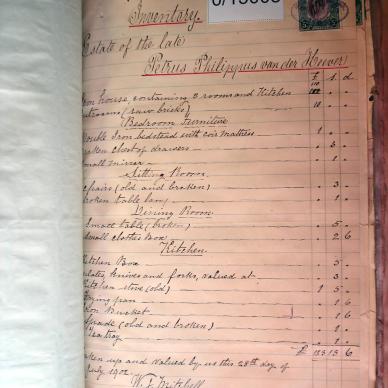 Inventory.
Estate of the late
Petrus Philippus van der Heever
£ s. d
Iron house, containing 2 rooms and Kitchen
(raw bricks) 10 . .
Bedroom Furniture
Double Iron bedstead with coir mattress 1 . .
Broken chest of drawers . 3 .
Small mirror . 1 .
Sitting Room
Chairs (old and broken) . 3 .
Broken table lamp . 1 .
Dining Room
Small table (broken) . 5 .
Small clothes Box . 2 6
Kitchen
Kitchen Box . 3 .
Plates, knives and forks, valued at . 3 .
Kitchen stove (old) 1 5 .
Frying pan . 1 6
Iron Bucket . 1 6
Spade (old and broken) . 1 .
Tea tray . 1 6
£ 6
Taken up and valued by us this 28th day of
July 1902
W. J. Mitchell